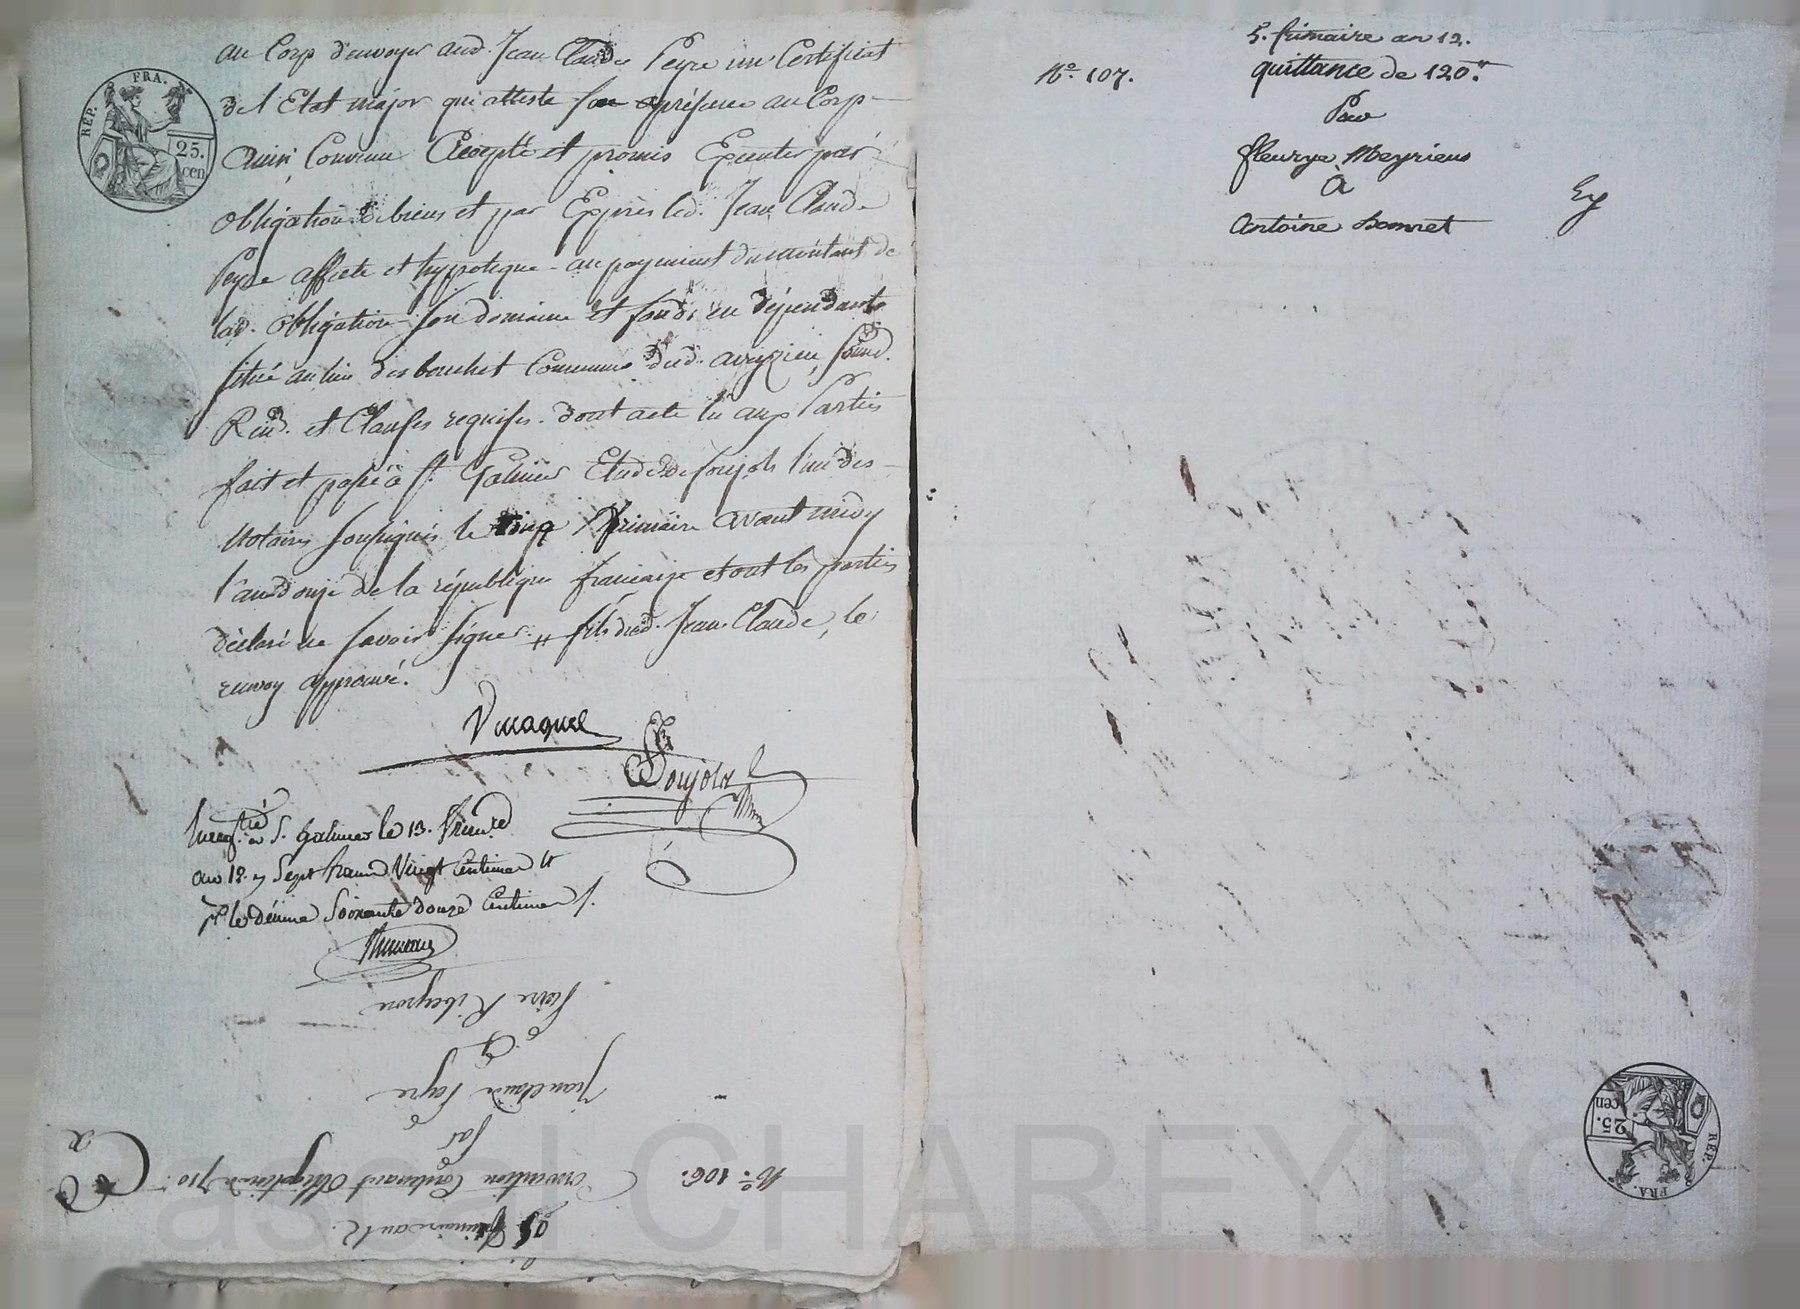 au Corp d'envoyer aud. Jean Claude Peyre un Certificat
de l'Etat major qui atteste son présence au Corp
Ainsi Convenu Accepté et promis Executer par
obligation de biens et par Exprès led. Jean Claude
Peyre affecte et hypoteque au payement du montant de
lad. obligation son domaine et fonds en dépendants
situé au lieu des bouchet Commune dud. aveyzieu, soumd.
Rend. et Clauses requises. dont acte lu aux Parties
fait et passé à St. Galmier Etude de Soujols l'un des
Notaires soussignés le cinq frimaire avant midy
l'an douze de la république française et ont les parties
déclaré ne savoir signer # fils dud. Jean Claude, le
renvoy approuvé.
Soujols
à St. Galmier le 13. frimaire
an 12. Sept francs Vingt Centimes
le décime Soixante douze Centimes
Pierre Ribeyron
à
Jean Claude Payre
Par
N.º 106. Convention Contenant Obligation de 710
frimaire an 12.
REP. FRA.
25.
cen
5. frimaire an 12.
N.º 107. quittance de 120.
Par
fleurye Meyrieus
à
Antoine bonnet
REP. FRA.
25.
cen
ascal CHAREYRO